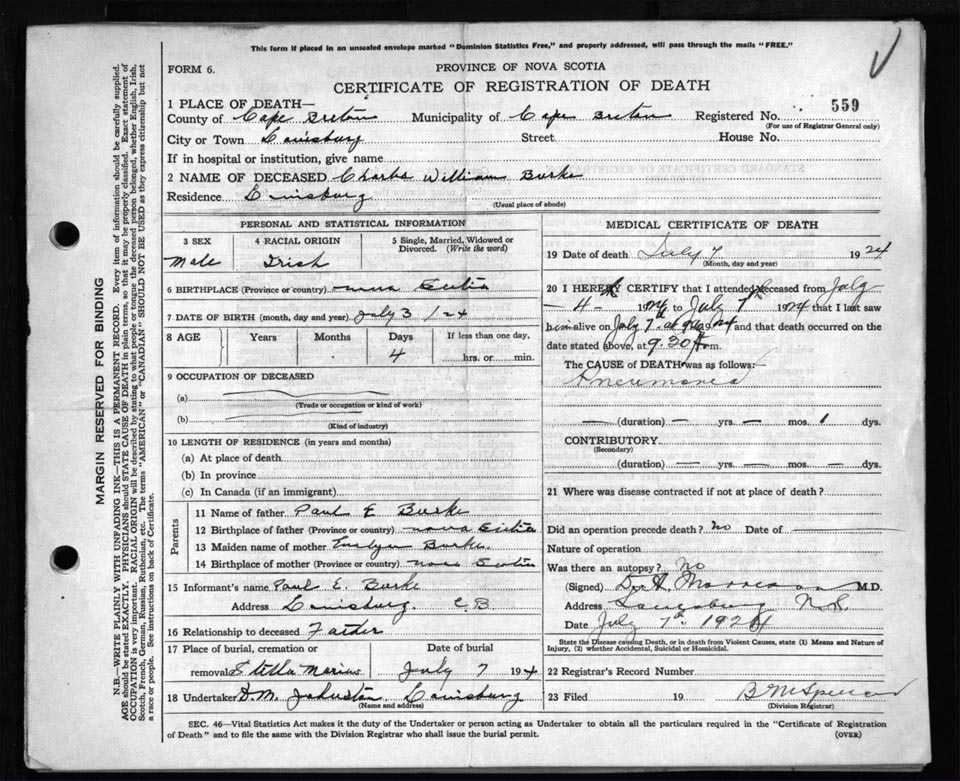 This form if placed in an unsealed envelope marked "Dominion Statistics Free," and properly addressed, will pass through the mails "FREE."
FORM 6.
PROVINCE OF NOVA SCOTIA
CERTIFICATE OF REGISTRATION OF DEATH
1 PLACE OF DEATH—
County of Cape Breton Municipality of Cape Breton Registered No. 559
(For use of Registrar General only)
City or Town Louisburg Street House No.
If in hospital or institution, give name
2 NAME OF DECEASED Charles William Burke
Residence Louisburg
(Usual place of abode)
PERSONAL AND STATISTICAL INFORMATION
3 SEX 4 RACIAL ORIGIN 5 Single, Married, Widowed or Divorced. (Write the word)
Male Irish
6 BIRTHPLACE (Province or country) Nova Scotia
7 DATE OF BIRTH (month, day and year) July 3 / 24
8 AGE Years Months Days If less than one day,
4 hrs. or min.
9 OCCUPATION OF DECEASED
(a)
(Trade or occupation or kind of work)
(b)
(Kind of industry)
10 LENGTH OF RESIDENCE (in years and months)
(a) At place of death
(b) In province
(c) In Canada (if an immigrant)
Parents
11 Name of father Paul E Burke
12 Birthplace of father (Province or country) Nova Scotia
13 Maiden name of mother Evelyn Burke.
14 Birthplace of mother (Province or country) Nova Scotia
15 Informant's name Paul E. Burke
Address Louisburg. C.B.
16 Relationship to deceased Father
17 Place of burial, cremation or Date of burial
removal Stella Maris July 7 1924
18 Undertaker D.M. Johnston Louisburg
(Name and address)
MEDICAL CERTIFICATE OF DEATH
19 Date of death July 7 1924
(Month, day and year)
20 I HEREBY CERTIFY that I attended deceased from July
4 - 1924 to July 7th 1924 that I last saw
him alive on July 7th at 1924 and that death occurred on
date stated above, at 9.30 m.
The CAUSE OF DEATH was as follows:—
Pneumonia
— (duration) — yrs. — mos. 1 dys.
CONTRIBUTORY
(Secondary)
(duration) — yrs. — mos. — dys.
21 Where was disease contracted if not at place of death?
Did an operation precede death? No Date of
Nature of operation
Was there an autopsy? No
(Signed) D. A. Morrison M.D.
Address Louisburg N.S.
Date July 7th 1924
State the Disease causing Death, or in death from Violent Causes, state (1) Means and Nature of
Injury, (2) whether Accidental, Suicidal or Homicidal.
22 Registrar's Record Number
23 Filed 19 B M Spencer
(Division Registrar)
SEC. 46—Vital Statistics Act makes it the duty of the Undertaker or person acting as Undertaker to obtain all the particulars required in the "Certificate of Registration
of Death" and to file the same with the Division Registrar who shall issue the burial permit.
(OVER)
MARGIN RESERVED FOR BINDING
N.B.—WRITE PLAINLY WITH UNFADING INK—THIS IS A PERMANENT RECORD. Every item of information should be carefully supplied.
AGE should be stated EXACTLY. PHYSICIANS should STATE CAUSE OF DEATH in plain terms, so that it may be properly classified. Exact statement of
OCCUPATION is very important. RACIAL ORIGIN will be described by stating to what people or tongue the deceased person belonged, whether English, Irish,
Scotch, French, German, Russian, Ruthenian, etc. The terms "AMERICAN" or "CANADIAN" SHOULD NOT BE USED as they express citizenship but not
a race or people. See instructions on back of Certificate.